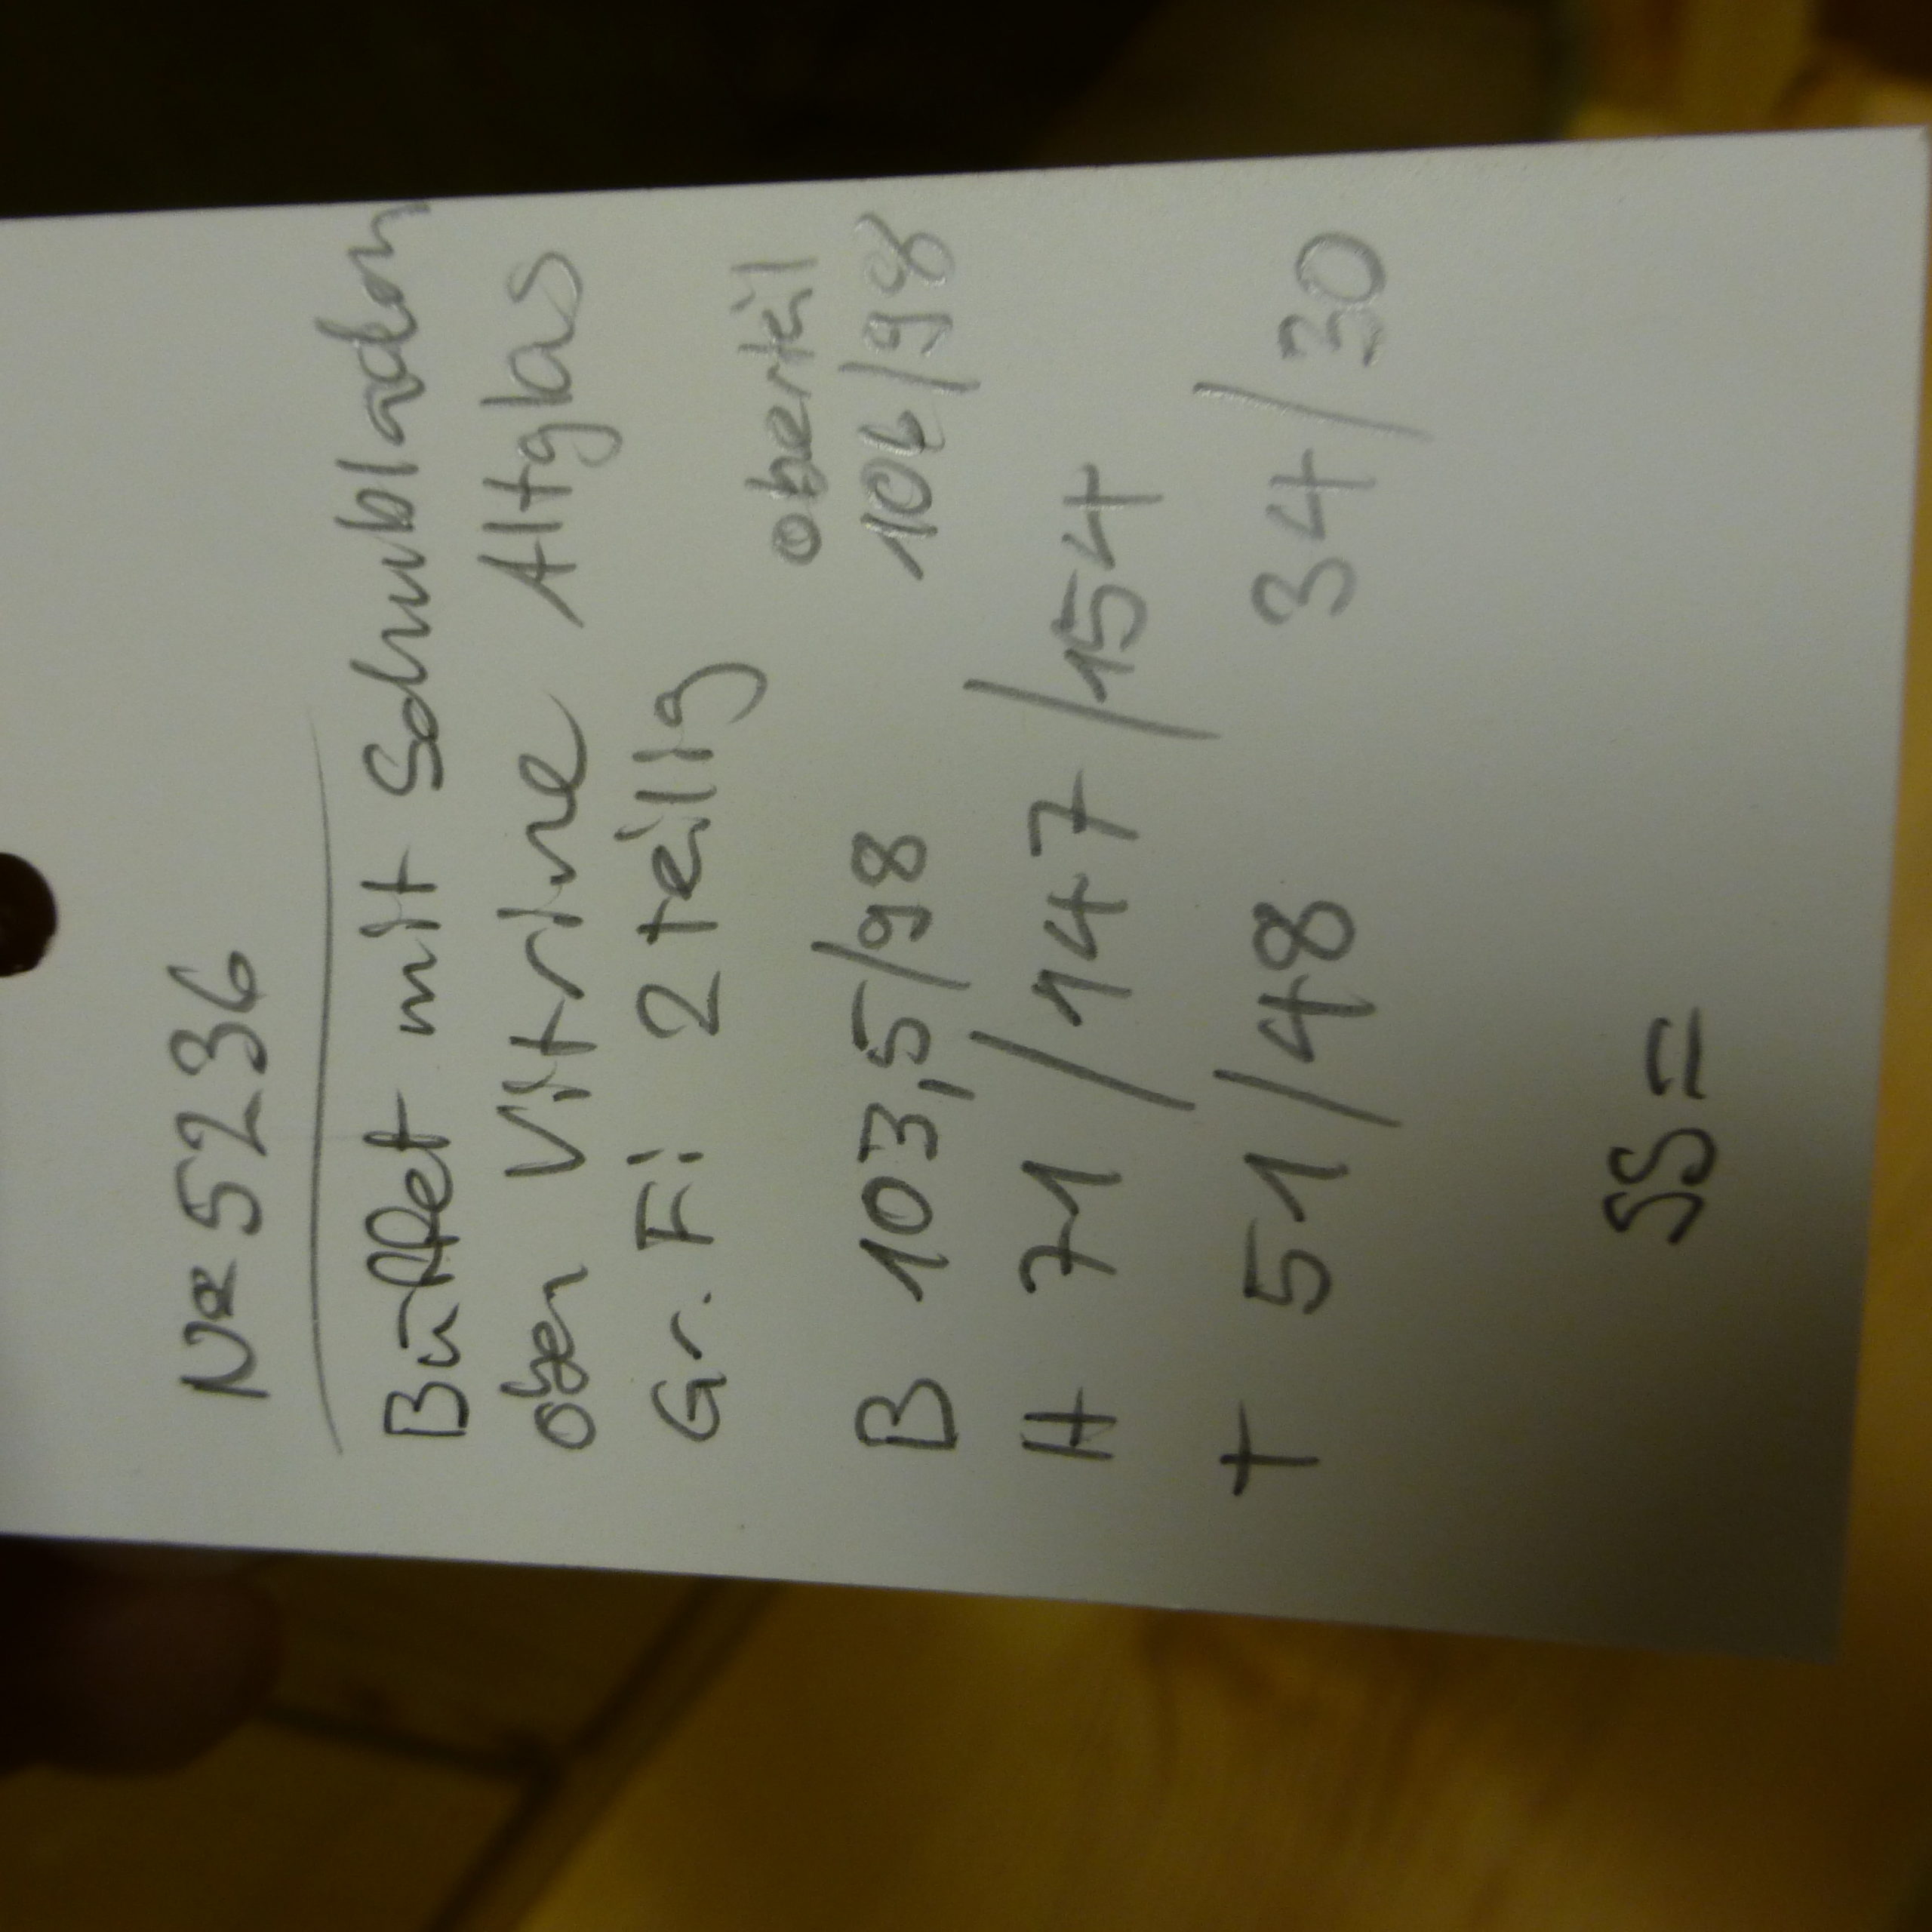 No 5236
Büffet mit Schubladen
oben Vitrine Altglas
Gr. Fi 2 teilig
oberteil
B 103,5/98 106/98
H 71 / 147 / 154
T 51/48 34/30
SS =